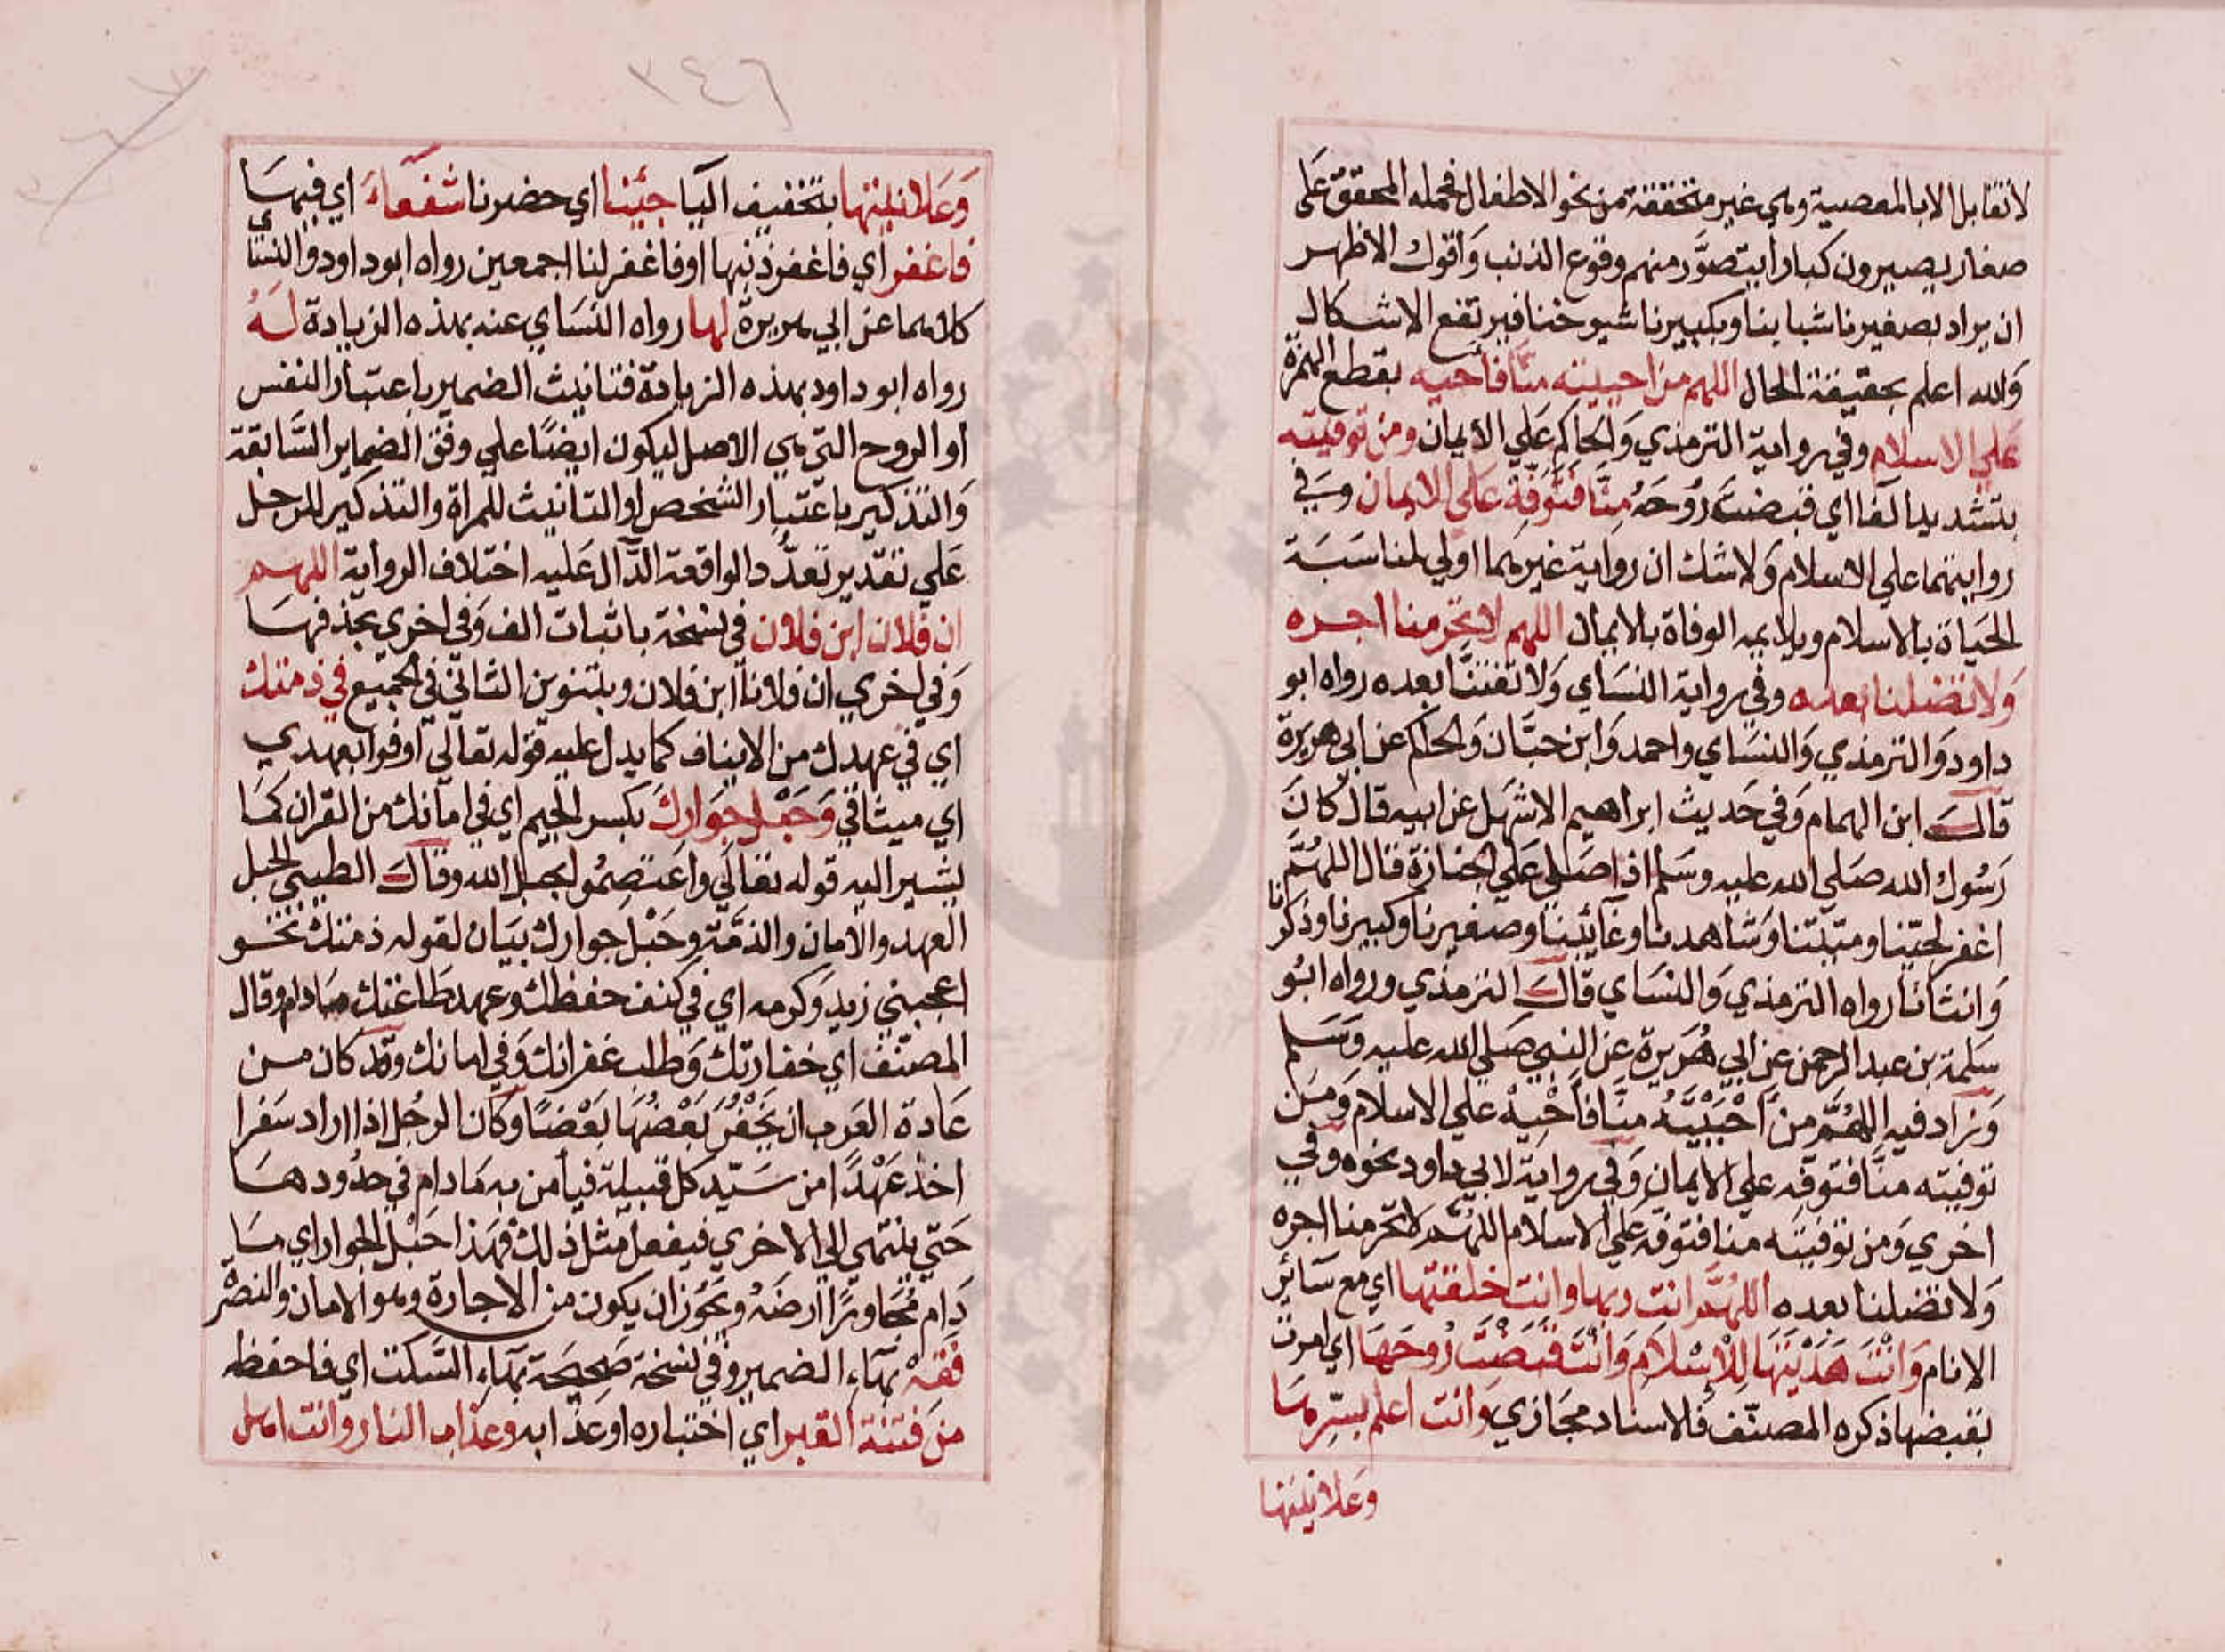 لا تقابل الا بالمعصية وهي غير متحققة من نحو الاطفال فحمله المحقق على
صغار يصيرون كبارا يتصوَّر منهم وقوع الذنب وَاقول الاظهر
ان يراد بصغيرنا شبابنا وبكبيرنا شيوخنا فيرتفع الاشكال
وَالله اعلم بحقيقة الحال اللهم من احييته منّا فاحيه بقطع الهمزة
علي الاسلام وفي رواية الترمذي وَالحاكم عَلي الايمان ومن توفيته
بتشديد الفا اي قبضتَ رُوحَهُ مِنَّا فتَوَفِّهِ عَلي الايمان وَفي
روايتهما علي الاسلام وَلا شك ان رواية غيرهما اولي لمناسَبَة
الحَياة بالاسلام ويلايمه الوفاة بالايمان اللهم لا تحرمنا اجره
وَلا تضلنا بعده وفي رواية النسَاي وَلا تفتنَّا بعده رواه ابو
داود وَالترمذي وَالنسَاي واحمد وَابن حبَّان وَالحاكم عن ابي هريرة
قال ابن الهمام وَفي حَديث ابراهيم الاشهل عن ابيه قال كانَ
رَسُول الله صَلي الله عليه وسَلم اذا صَلي عَلي الجنازة قال اللهُمَّ
اغفر لحيّنا وميّتنا وَشاهدنا وغائبنا وصغيرنا وكبيرنا وذكرنا
وَانثانا رواه الترمذي وَالنسَاي قالَ الترمذي ورواه ابُو
سَلمة بن عبد الرحمن عن ابي هُرَيرة عن النبي صَلي الله عليه وَسَلم
وَزاد فيه اللهُمَّ مَن اَحْيَيْتَهُ منَّا فاَحْيِهْ علي الاسلام وَمَن
توفيته منّا فتوفه علي الايمان وَفي رواية لابي داود نحوه وفي
اخري وَمن توفيته منا فتوفه عَلي الاسلام اللهُمَّ لا تحرمنا اجره
وَلا تضلنا بعده اللهُمَّ انت ربها وانت خلقتها اي مع سَائر
الانام وَانْتَ هَدَيْتَهَا لِلْاِسْلَامِ وَانْتَ قَبَضْتَ رُوحَهَا اي امرت
بقبضها ذكره المصنّف فالاسناد مجَازي وَانت اعلم بسِّرهَا
وَعَلانيتها
٣٤٦
وَعَلانيتها بتخفيف اليَا جئنا اي حضرنا شفعَاءَ اي فيهَا
فاغفر اي فاغفر ذنبها او فاغفر لنا اجمعين رواه ابو داود وَالنسَاي
كلاهما عن ابي هريرة لها رواه النسَاي عنه بهذه الزيادة لَهُ
رواه ابو داود بهذه الزيادة فتانيث الضمير باعتبار النفس
او الروح التي هي الاصل ليكون ايضًا علي وفق الضماير السَّابقة
وَالتذكير باعتبار الشخص او التانيث للمراة والتذكير للرجل
عَلي تقدير تعدُّد الواقعة الدَّال عَليه اختلاف الرواية اللهم
ان فلان ابن فلان في نسخة باثبات الف وَفي اخري بحذفهَا
وَفي اخري ان فلانا ابن فلان وبتنوين الثاني في الجميع في ذمتك
اي في عهدك من الايناف كما يدل عليه قوله تعَالي اوفوا بعهدي
اي ميثاقي وَحَبْل جوَارِكَ بكسر الجيم اي في امانك من القران كمَا
يشير اليه قوله تعَالي واعتصِمُوا بحبل الله وقالَ الطيبي الحبل
العهد والامان والذمّة وحَبْل جوارك بيَان لقوله ذمتك نحو
اعجبني زيد وَكرمه اي في كنف حفظك وعهد طاعتك مادام وقال
المصنّف اي خفارتك وَطلب غفرانك وَفي امانك وقد كان مـن
عَادة العَرب ان يَخْفُر بَعْضُهَا بَعْضًا وَكان الرجُل اذا اراد سَفرا
اخذ عَهْدًا من سَيّد كل قبيلة فيأمن به مَادام في حدُودهَا
حَتي ينتهي الي الاخري فيفعل مثل ذلك فهذا حَبْل الجوار اي مَا
دَام مُجَاورًا ارضَهُ ويجُوز ان يكون من الاجارة وهو الامان والنصْر
فَقِهْ بهَاء الضمير وفي نسخة صَحِيحَة بهَاءِ السَّكت اي فاحفظه
من فتنة القبر اي اختباره او عَذابه وعذاب النار وانت اهل